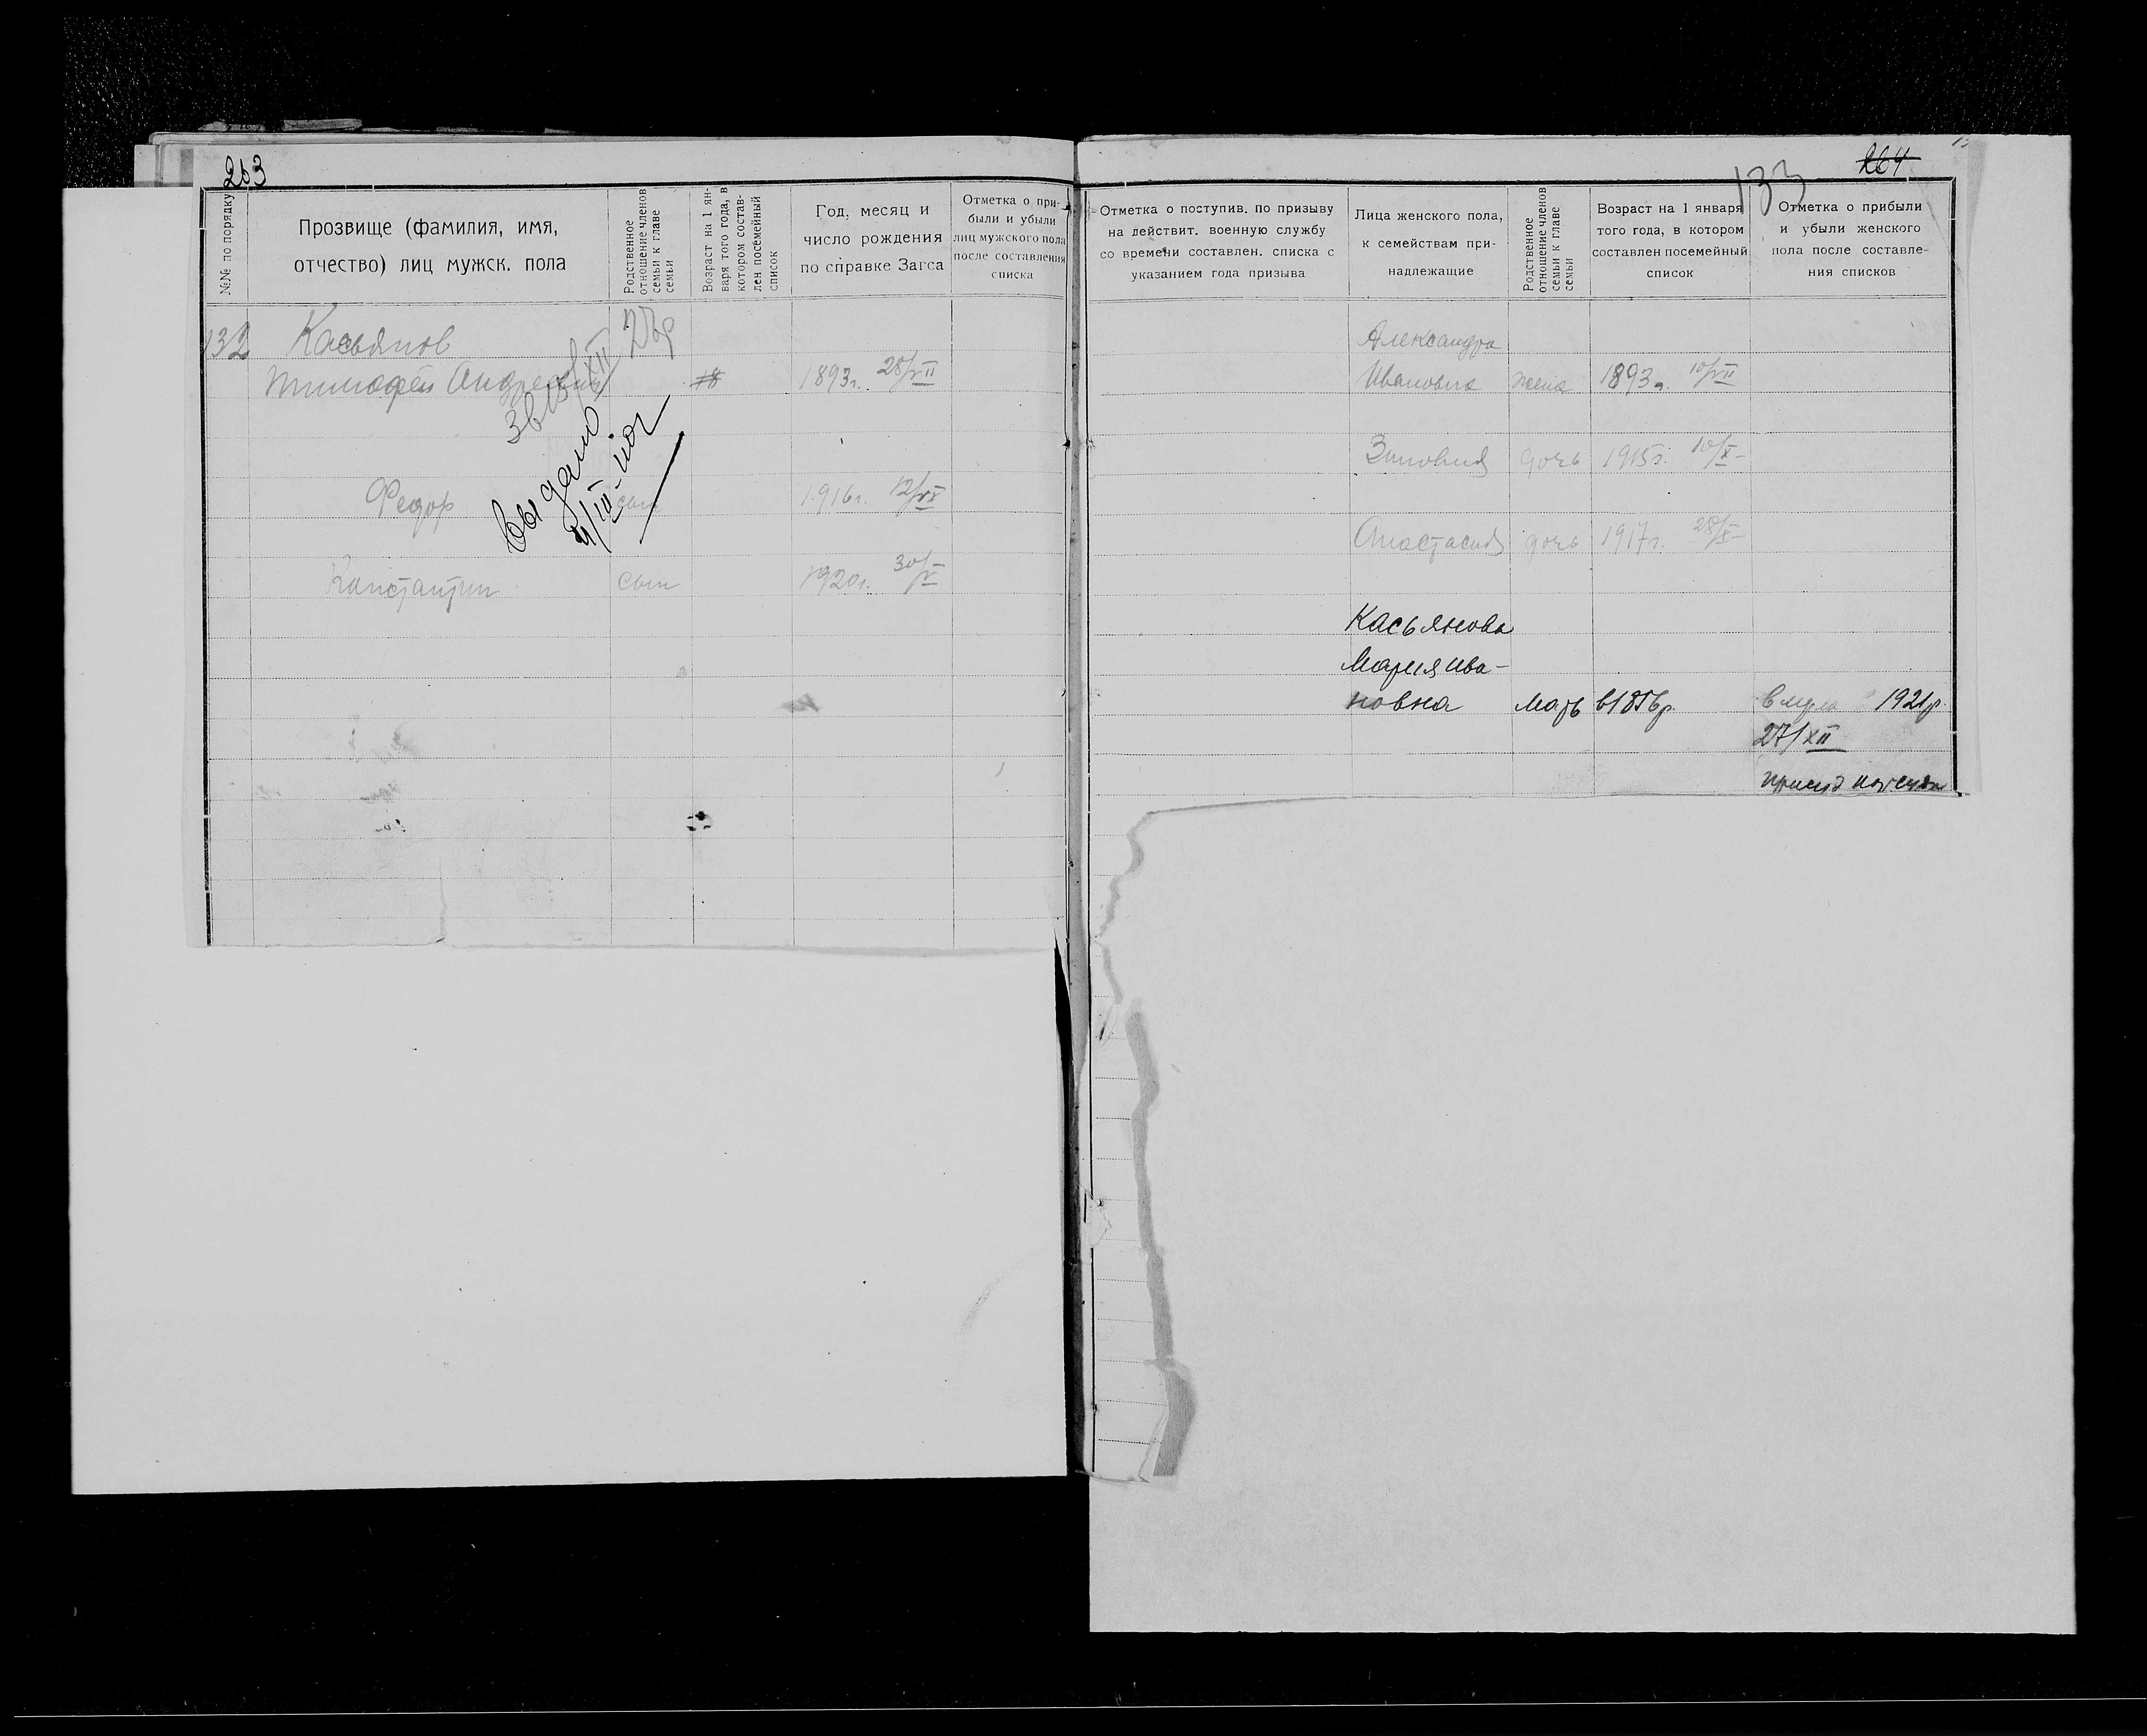 263
№№ по порядку
Прозвище (фамилия, имя,
отчество) лиц мужск. пола
Родственное
отношение членов
семьи к главе
семьи
Возраст на 1 ян-
варя того года, в
котором состав-
лен посемейный
список
Год, месяц и
число рождения
по справке Загса
Отметка о при-
были и убыли
лиц мужского пола
после составления
списка
132 Касьянов
Тимофей Андреевич 1893г. 28/VII
Выдано
Федор сын 1916г.
Константин сын 1920г. 30/V
264
133
Отметка о поступив. по призыву
на действит. военную службу
со времени составлен. списка с
указанием года призыва
Лица женского пола,
к семействам при-
надлежащие
Родственное
отношение членов
семьи к главе
семьи
Возраст на 1 января
того года, в котором
составлен посемейный
список
Отметка о прибыли
и убыли женского
пола после составле-
ния списков
Александра
Ивановна жена 1893г. 10/VII
Зиновия дочь 1915г. 10/X
Анастасия дочь 1917г. 28/X
Касьянова
Мария Ива-
новна мать в 1856г. 1921г.
27/XII